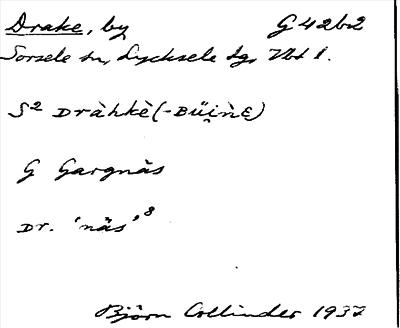 Drake, by G42b2
Sorsele sn, Lycksele tg, Vbt l.
S² Dràhkè (-Büi̤ǹE)
G Gargnäs
Dr. 'näs' ⁸
Björn Collinder 1937